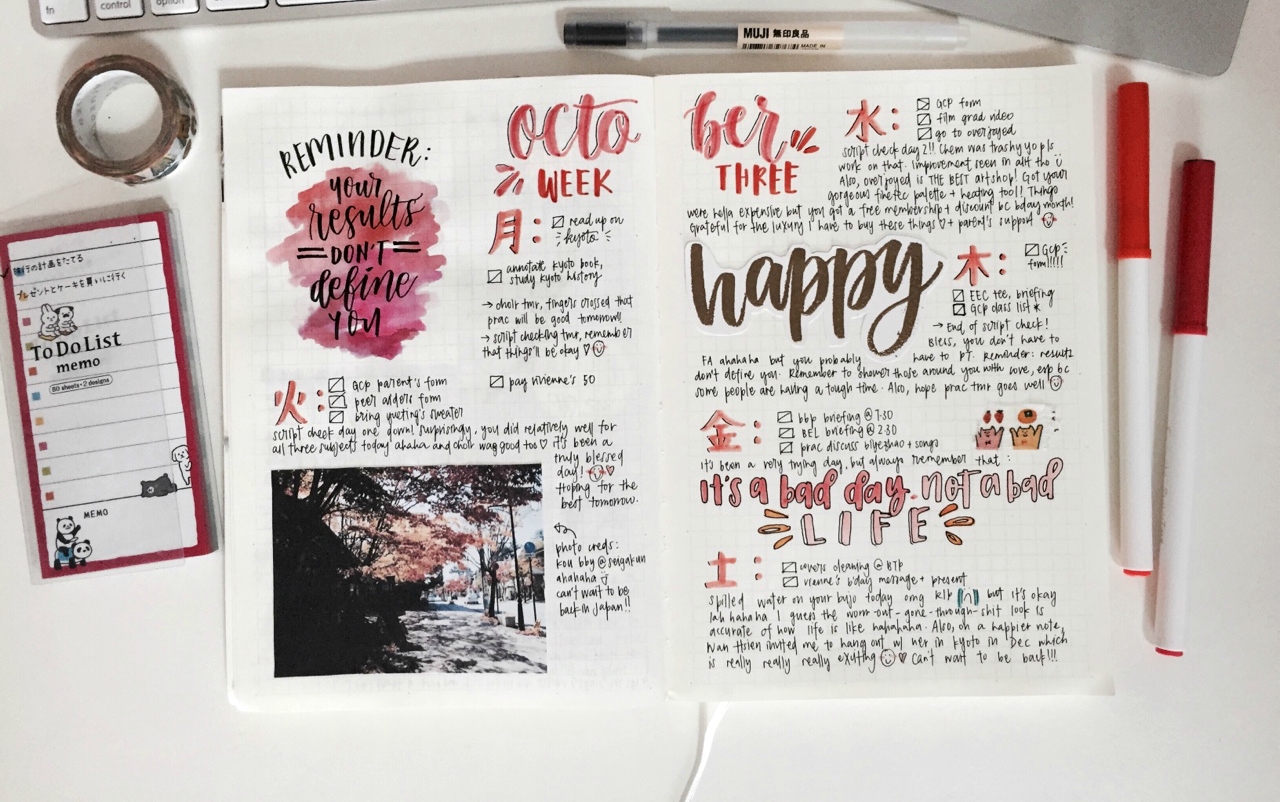 fn
control
option
MUJI 無印良品
MADE IN
行の計画をたてる
プレゼントとケーキを買いに行く
To Do List
memo
80 sheets・2 designs
MEMO
REMINDER:
your
results
DON'T
define
you
octo
WEEK
月:
read up on
kyoto
annotate kyoto book,
study kyoto history
→ choir tmr, fingers crossed that
prac will be good tomorrow!
→ script checking tmr, remember
that things'll be okay ♡
pay vivienne's 50
火:
GCP parent's form
peer alders form
bring yueting's sweater
script check day one down! surprisingly, you did relatively well for
all three subjects today ahaha and choir was good too ♡ it's been a
truly blessed
day!
Hoping for the
best tomorrow.
photo creds:
kou bby @seigakun
ahahaha
can't wait to be
back in Japan!!
ber
THREE
水:
GCP form
film grad video
go to overjoyed
script check day 2!! Chem was trashy yo pls
work on that. Improvement seen in alit tho
Also, overjoyed is THE BEST artshop! Got your
gorgeous finetec palette + heating tool! Things
were hella expensive but you got a free membership + discount bc bday month!
Grateful for the luxury I have to buy these things ♡ + parent's support
happy
木:
GCP
form!!!!!
EEC tee, briefing
GCP class list *
→ End of script check!
Bless, you don't have to
FA ahahaha but you probably have to PT. Reminder: results
don't define you. Remember to shower those around you with love, esp bc
some people are having a tough time. Also, hope prac tmr goes well
金:
bbp briefing @ 7:30
BEL briefing @ 2:30
prac discuss biyezhao + songs
it's been a very trying day, but always remember that:
it's a bad day, not a bad
LIFE
土:
covers cleaning @ BTP
vienne's b'day message + present
spilled water on your bujo today omg RIP but it's okay
lah hahaha I guess the worn-out-gone-through-shit look is
accurate of how life is like hahahaha. Also, on a happier note,
Wan Hsien invited me to hang out w/ her in Kyoto in Dec which
is really really really exciting ♡ Can't wait to be back!!!